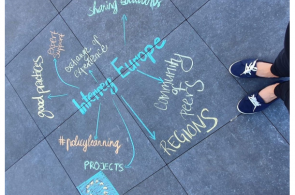 sharing solutions
expert
support
exchange of
experience
good practices
Interreg Europe
community
of
peers
REGIONS
#policylearning
PROJECTS